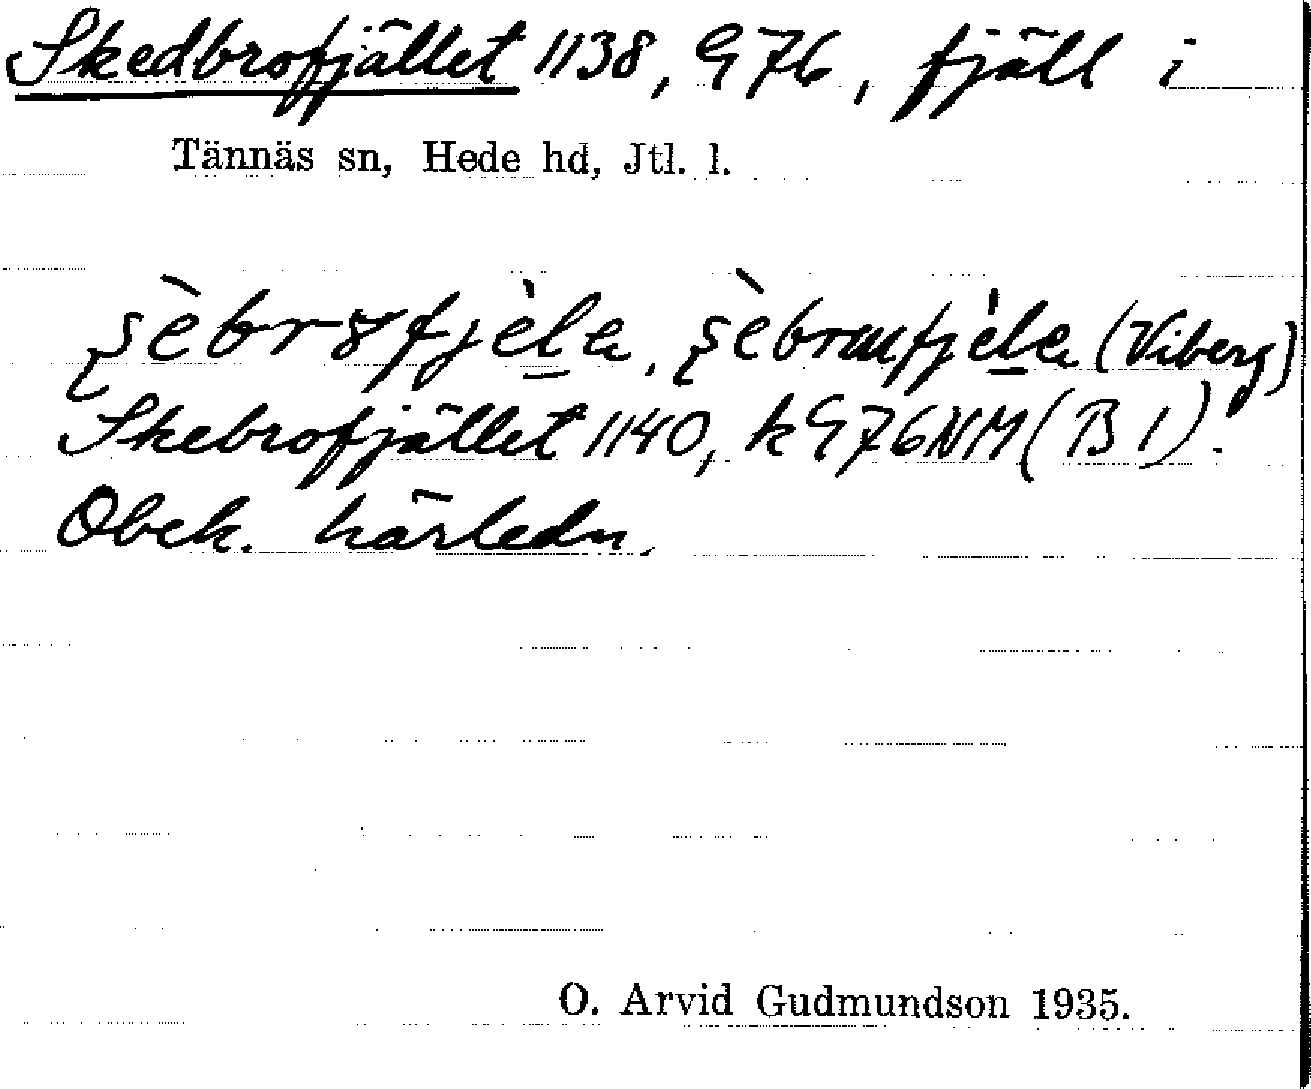 Skedbrofjället 1138, G76, fjäll i
Tännäs sn, Hede hd, Jtl. l.
(Viberg)
Skebrofjället 1140, kG76NM (B1).
Obek. härledn.
O. Arvid Gudmundson 1935.